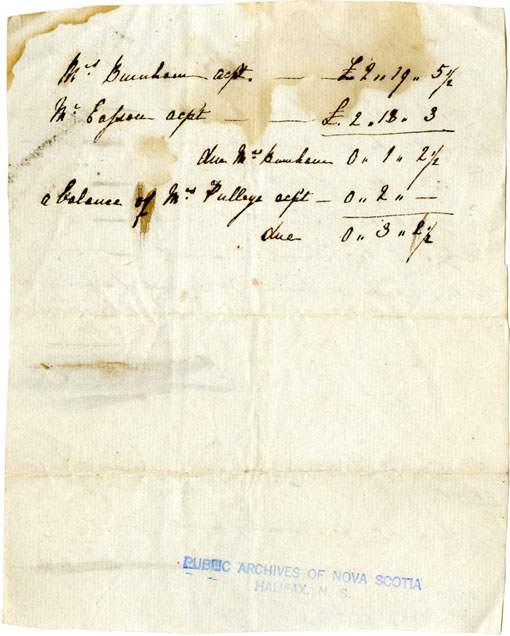 Mrs Burnham acpt. — £ 2 „ 19 „ 5 1/2
Mr Easson acpt — — £. 2 „ 18 „ 3
due Mrs Burnham 0 „ 1 „ 2 1/2
a balance of Mrs Pulleys acpt — 0 „ 2 „ —
due 0 „ 3 „ 2 1/2
PUBLIC ARCHIVES OF NOVA SCOTIA
HALIFAX, N. S.